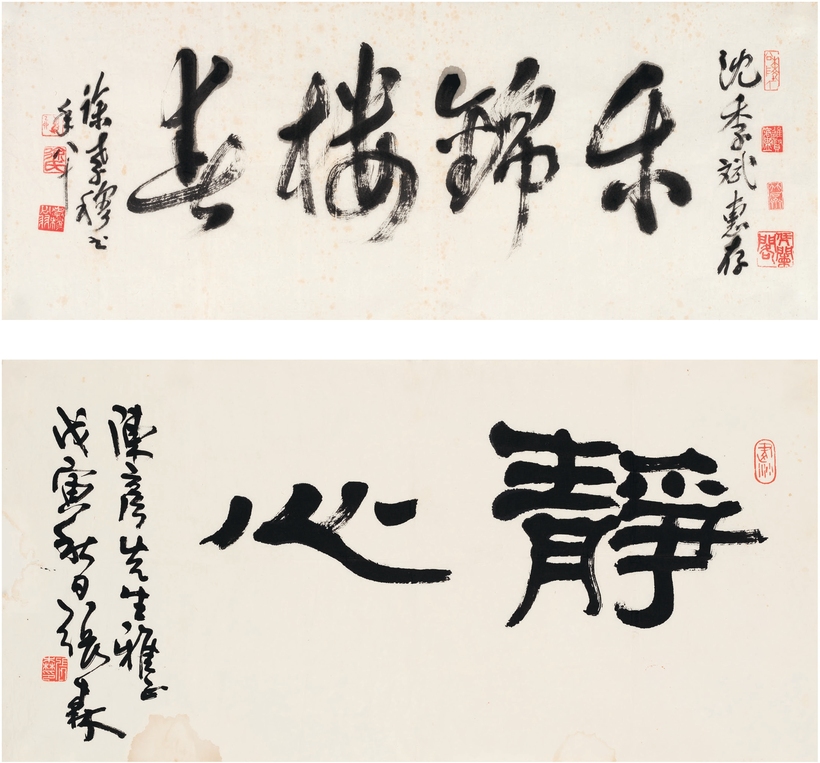 沈季斌惠存
錦樓春
徐孝穆书
年八十
靜心
陳彥先生雅正
戊寅秋日張森